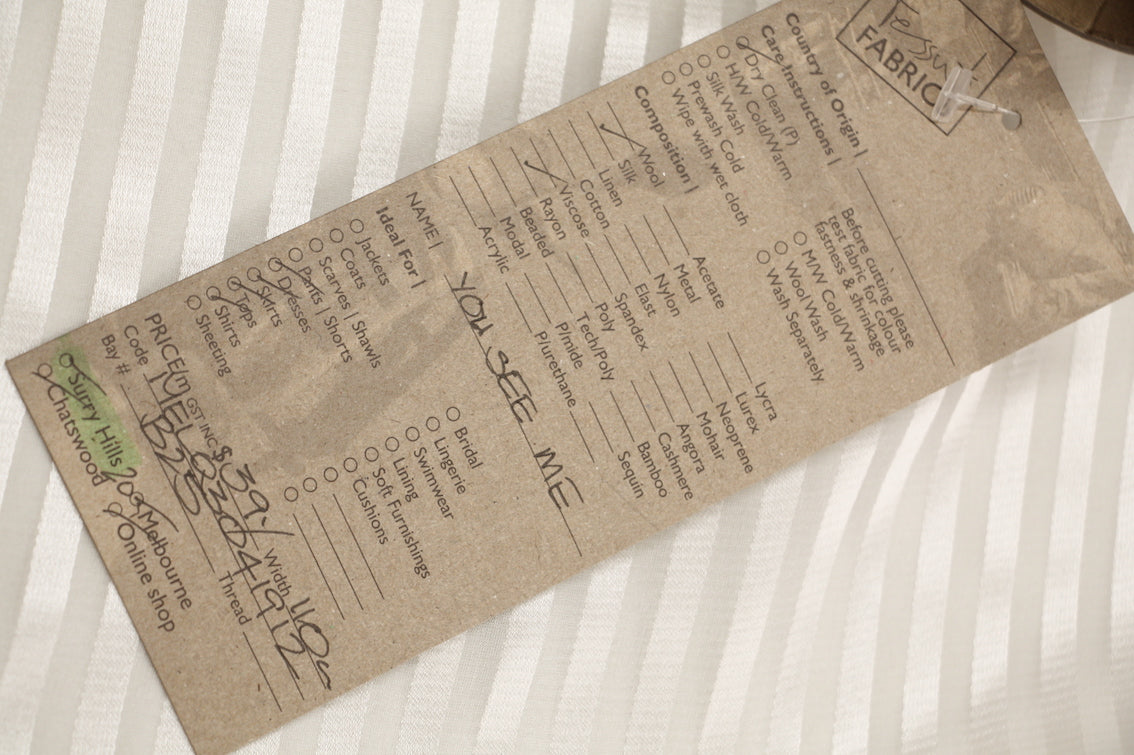 Tessuti
FABRICS
Country of Origin |
Care Instructions |
Dry Clean (P)
H/W Cold/Warm
Silk Wash
Prewash Cold
Wipe with wet cloth
Before cutting please
test fabric for colour
fastness & shrinkage
M/W Cold/Warm
Wool Wash
Wash Separately
Composition |
Wool
Silk
Linen
Cotton
Viscose
Rayon
Beaded
Modal
Acrylic
Acetate
Metal
Nylon
Elast
Spandex
Poly
Tech/Poly
P/mide
P/urethane
Lycra
Lurex
Neoprene
Mohair
Angora
Cashmere
Bamboo
Sequin
NAME | YOU SEE ME
Ideal For |
Jackets
Coats
Scarves | Shawls
Pants | Shorts
Dresses
Skirts
Tops
Shirts
Sheeting
Bridal
Lingerie
Swimwear
Lining
Soft Furnishings
Cushions
PRICE/m GST INC $39.- Width 110cm
Code MEL0230441912
Bay # B25 Thread
Surry Hills Melbourne
Chatswood Online shop